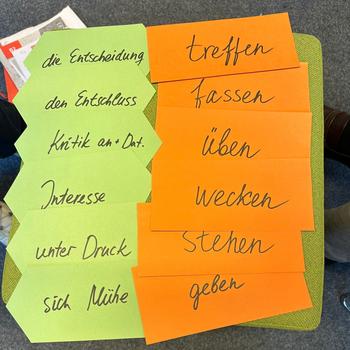 die Entscheidung treffen
den Entschluss fassen
Kritik an + Dat. üben
Interesse wecken
unter Druck stehen
sich Mühe geben